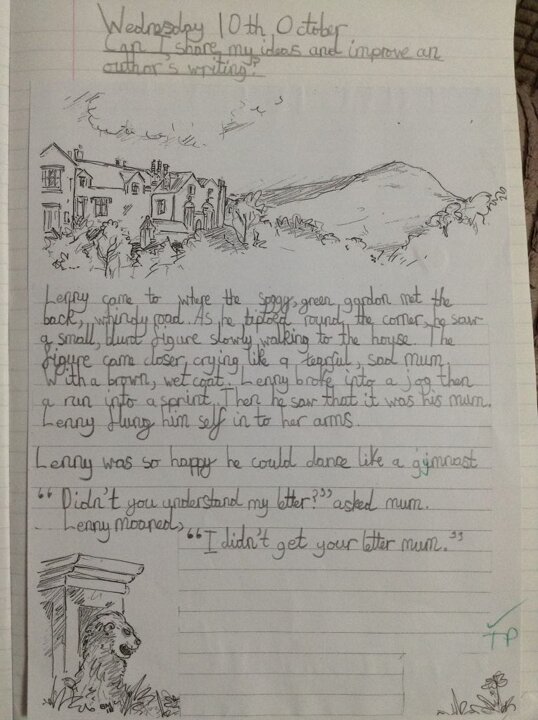 Wednesday 10th October
Can I share my ideas and improve an
author's writing?
Lenny came to where the soggy, green gardon met the
back, whindy road. As he tiptoed round the corner, he saw
a small, blunt figure slowly walking to the house. The
figure came closer, crying like a tearful, sad mum.
With a brown, wet coat. Lenny broke into a jog then
a run into a sprint. Then he saw that it was his mum.
Lenny flung him self in to her arms.
Lenny was so happy he could dance like a gyimnast
"Didn't you understand my letter?" asked mum.
Lenny moaned,
"I didn't get your letter mum."
TP